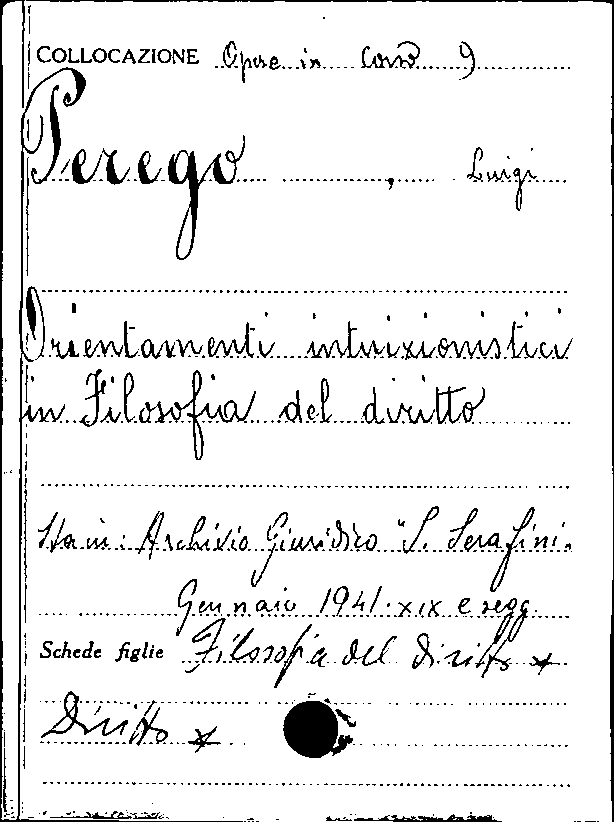 COLLOCAZIONE Opere in corso 9
Perego, Luigi
Orientamenti intuizionistici
in Filosofia del diritto
Sta in: Archivio Giuridico "S. Serafini.
Gennaio 1941.XIX e segg.
Schede figlie Filosofia del diritto *
Diritto *